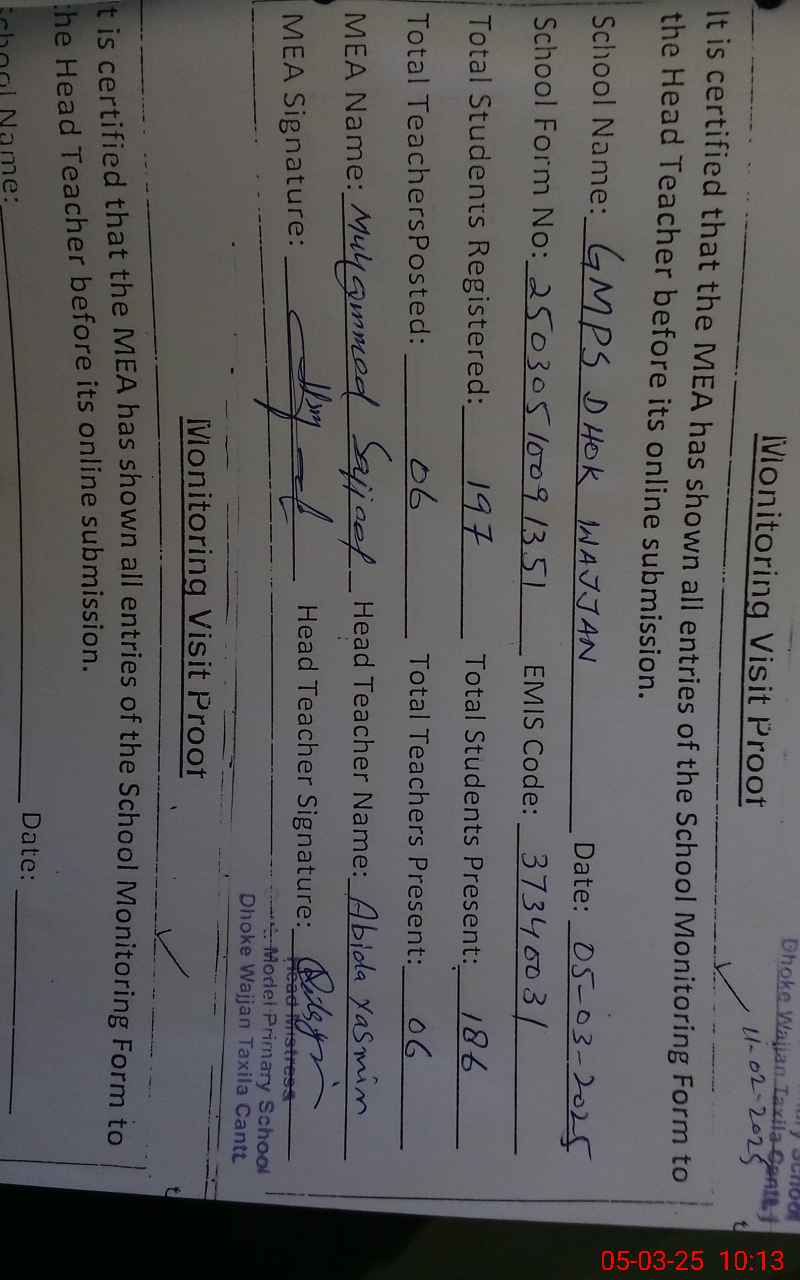 Dhoke Wajjan Taxila Cantt
11-02-2025
Monitoring Visit Proof
It is certified that the MEA has shown all entries of the School Monitoring Form to
the Head Teacher before its online submission.
School Name: GMPS DHOK WAJJAN Date: 05-03-2025
School Form No: 25030510091351 EMIS Code: 37340031
Total Students Registered: 197 Total Students Present: 186
Total TeachersPosted: 06 Total Teachers Present: 06
MEA Name: Muhammad Sajjad Head Teacher Name: Abida Yasmin
MEA Signature: Head Teacher Signature:
Head Mistress
Model Primary School
Dhoke Wajjan Taxila Cantt
Monitoring Visit Proof
t is certified that the MEA has shown all entries of the School Monitoring Form to
he Head Teacher before its online submission.
School Name: Date:
05-03-25 10:13